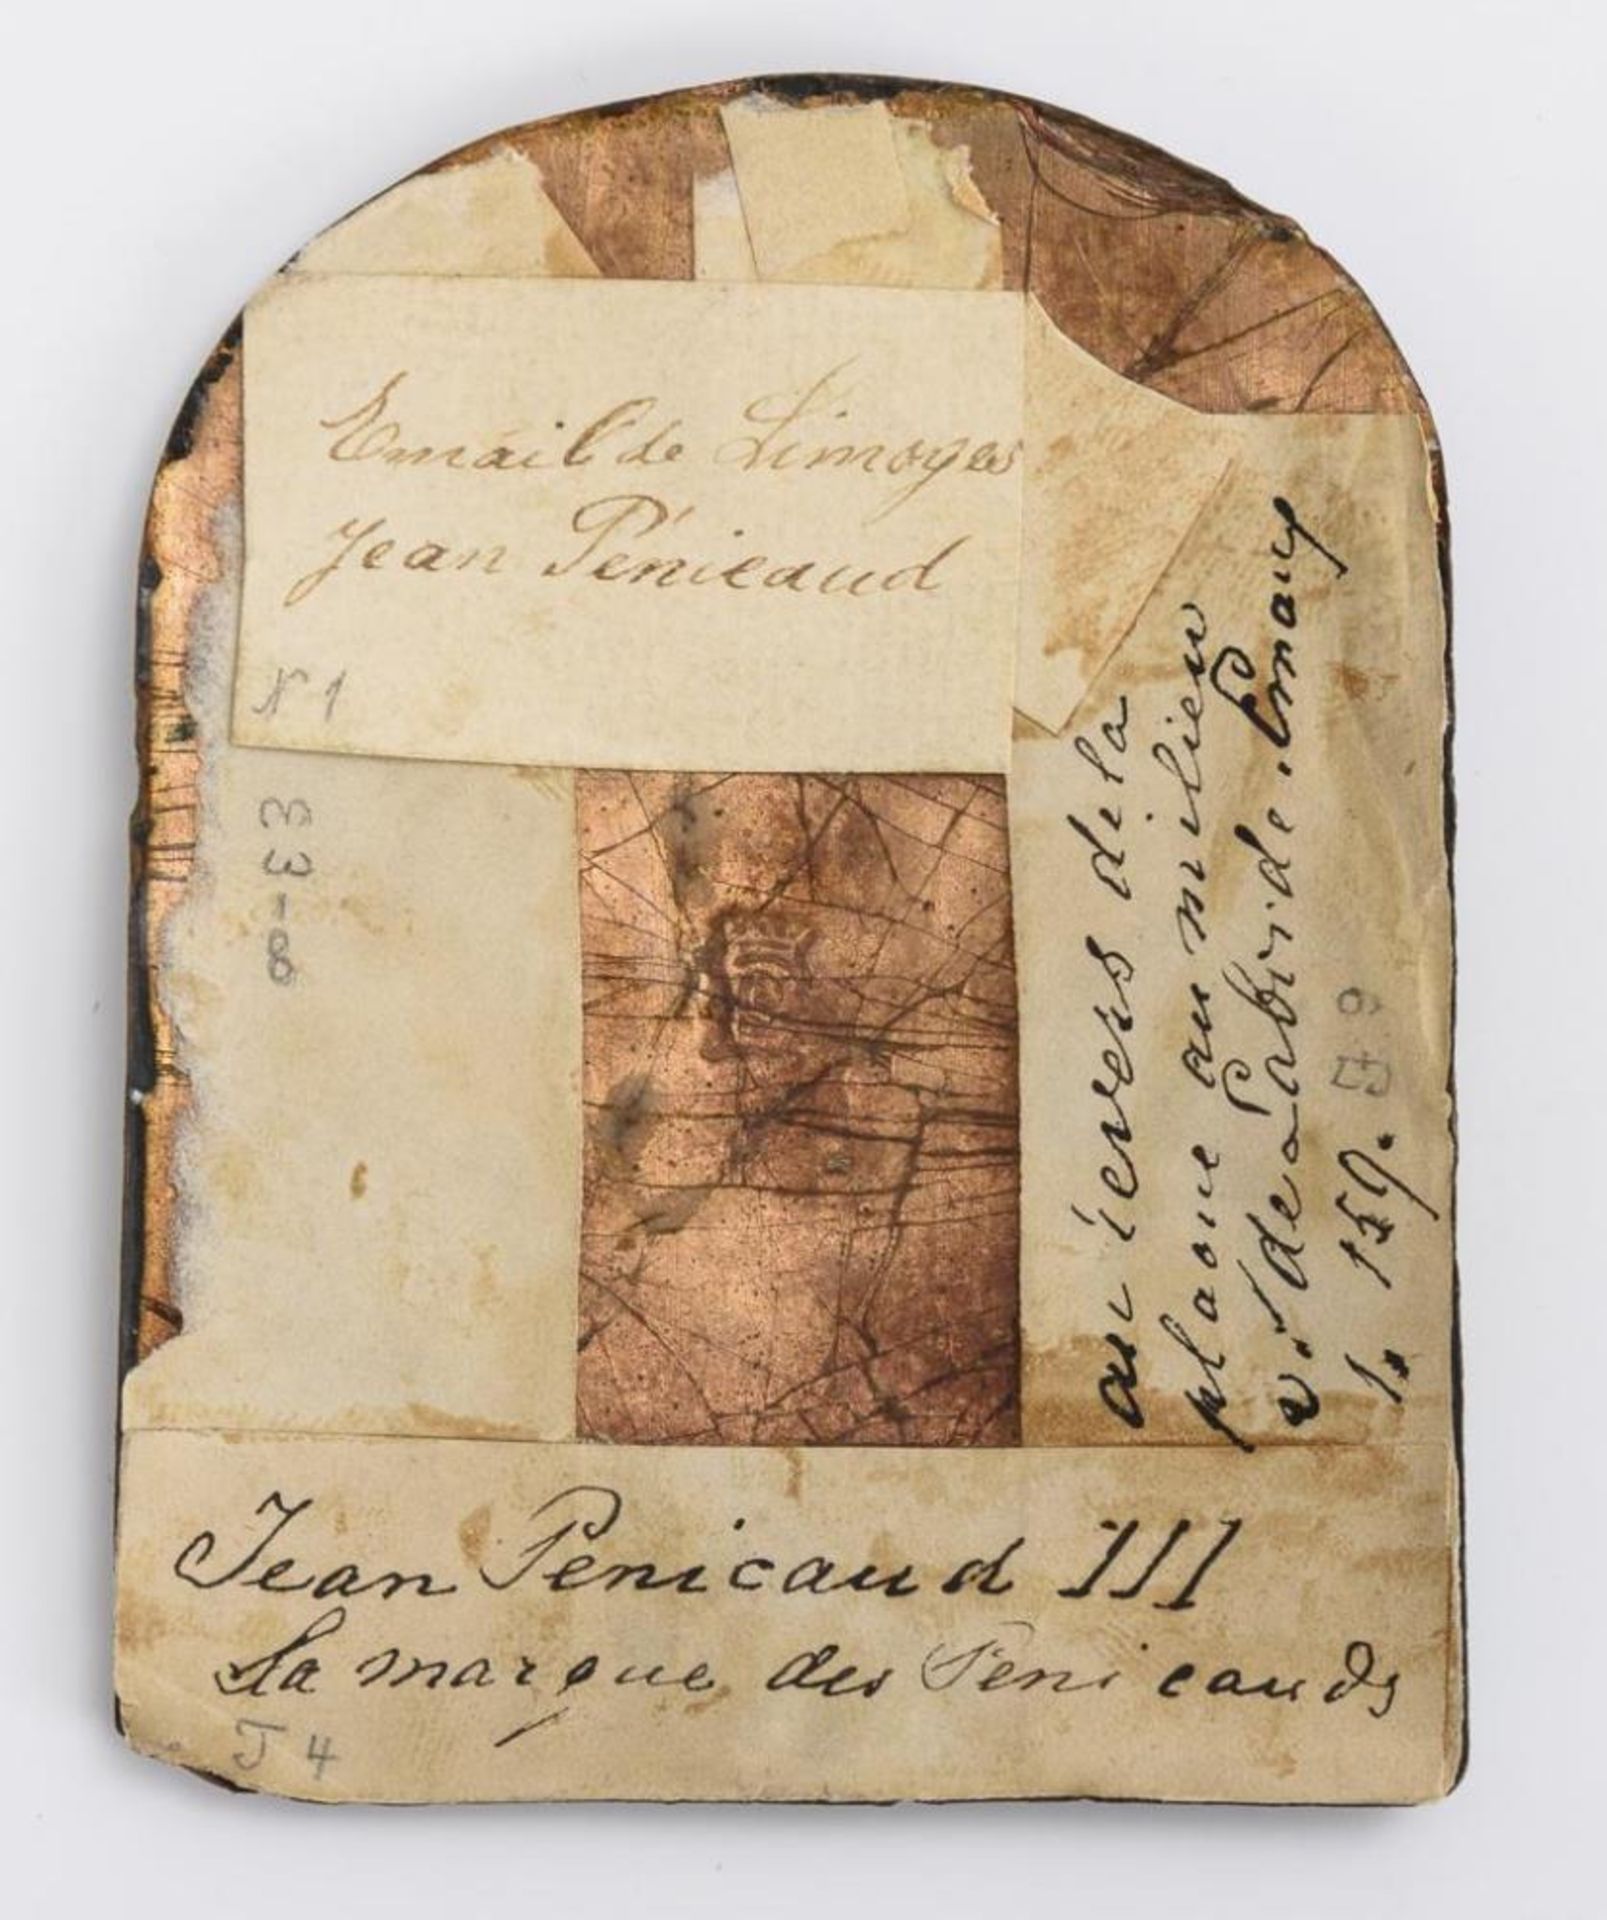 Email de Limoges
Jean Pénicaud
N 1
33-8
au revers de la
plaque au milieu
v. de Laborde. Emaux
1. 159.
Jean Penicaud III
la marque des Penicauds
J 4